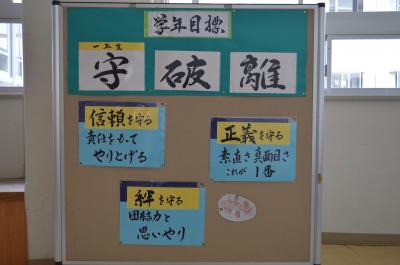 学年目標
一年生
守 破 離
信頼を守る
責任をもって
やりとげる
正義を守る
素直さ真面目さ
これが1番
絆を守る
団結力と
思いやり